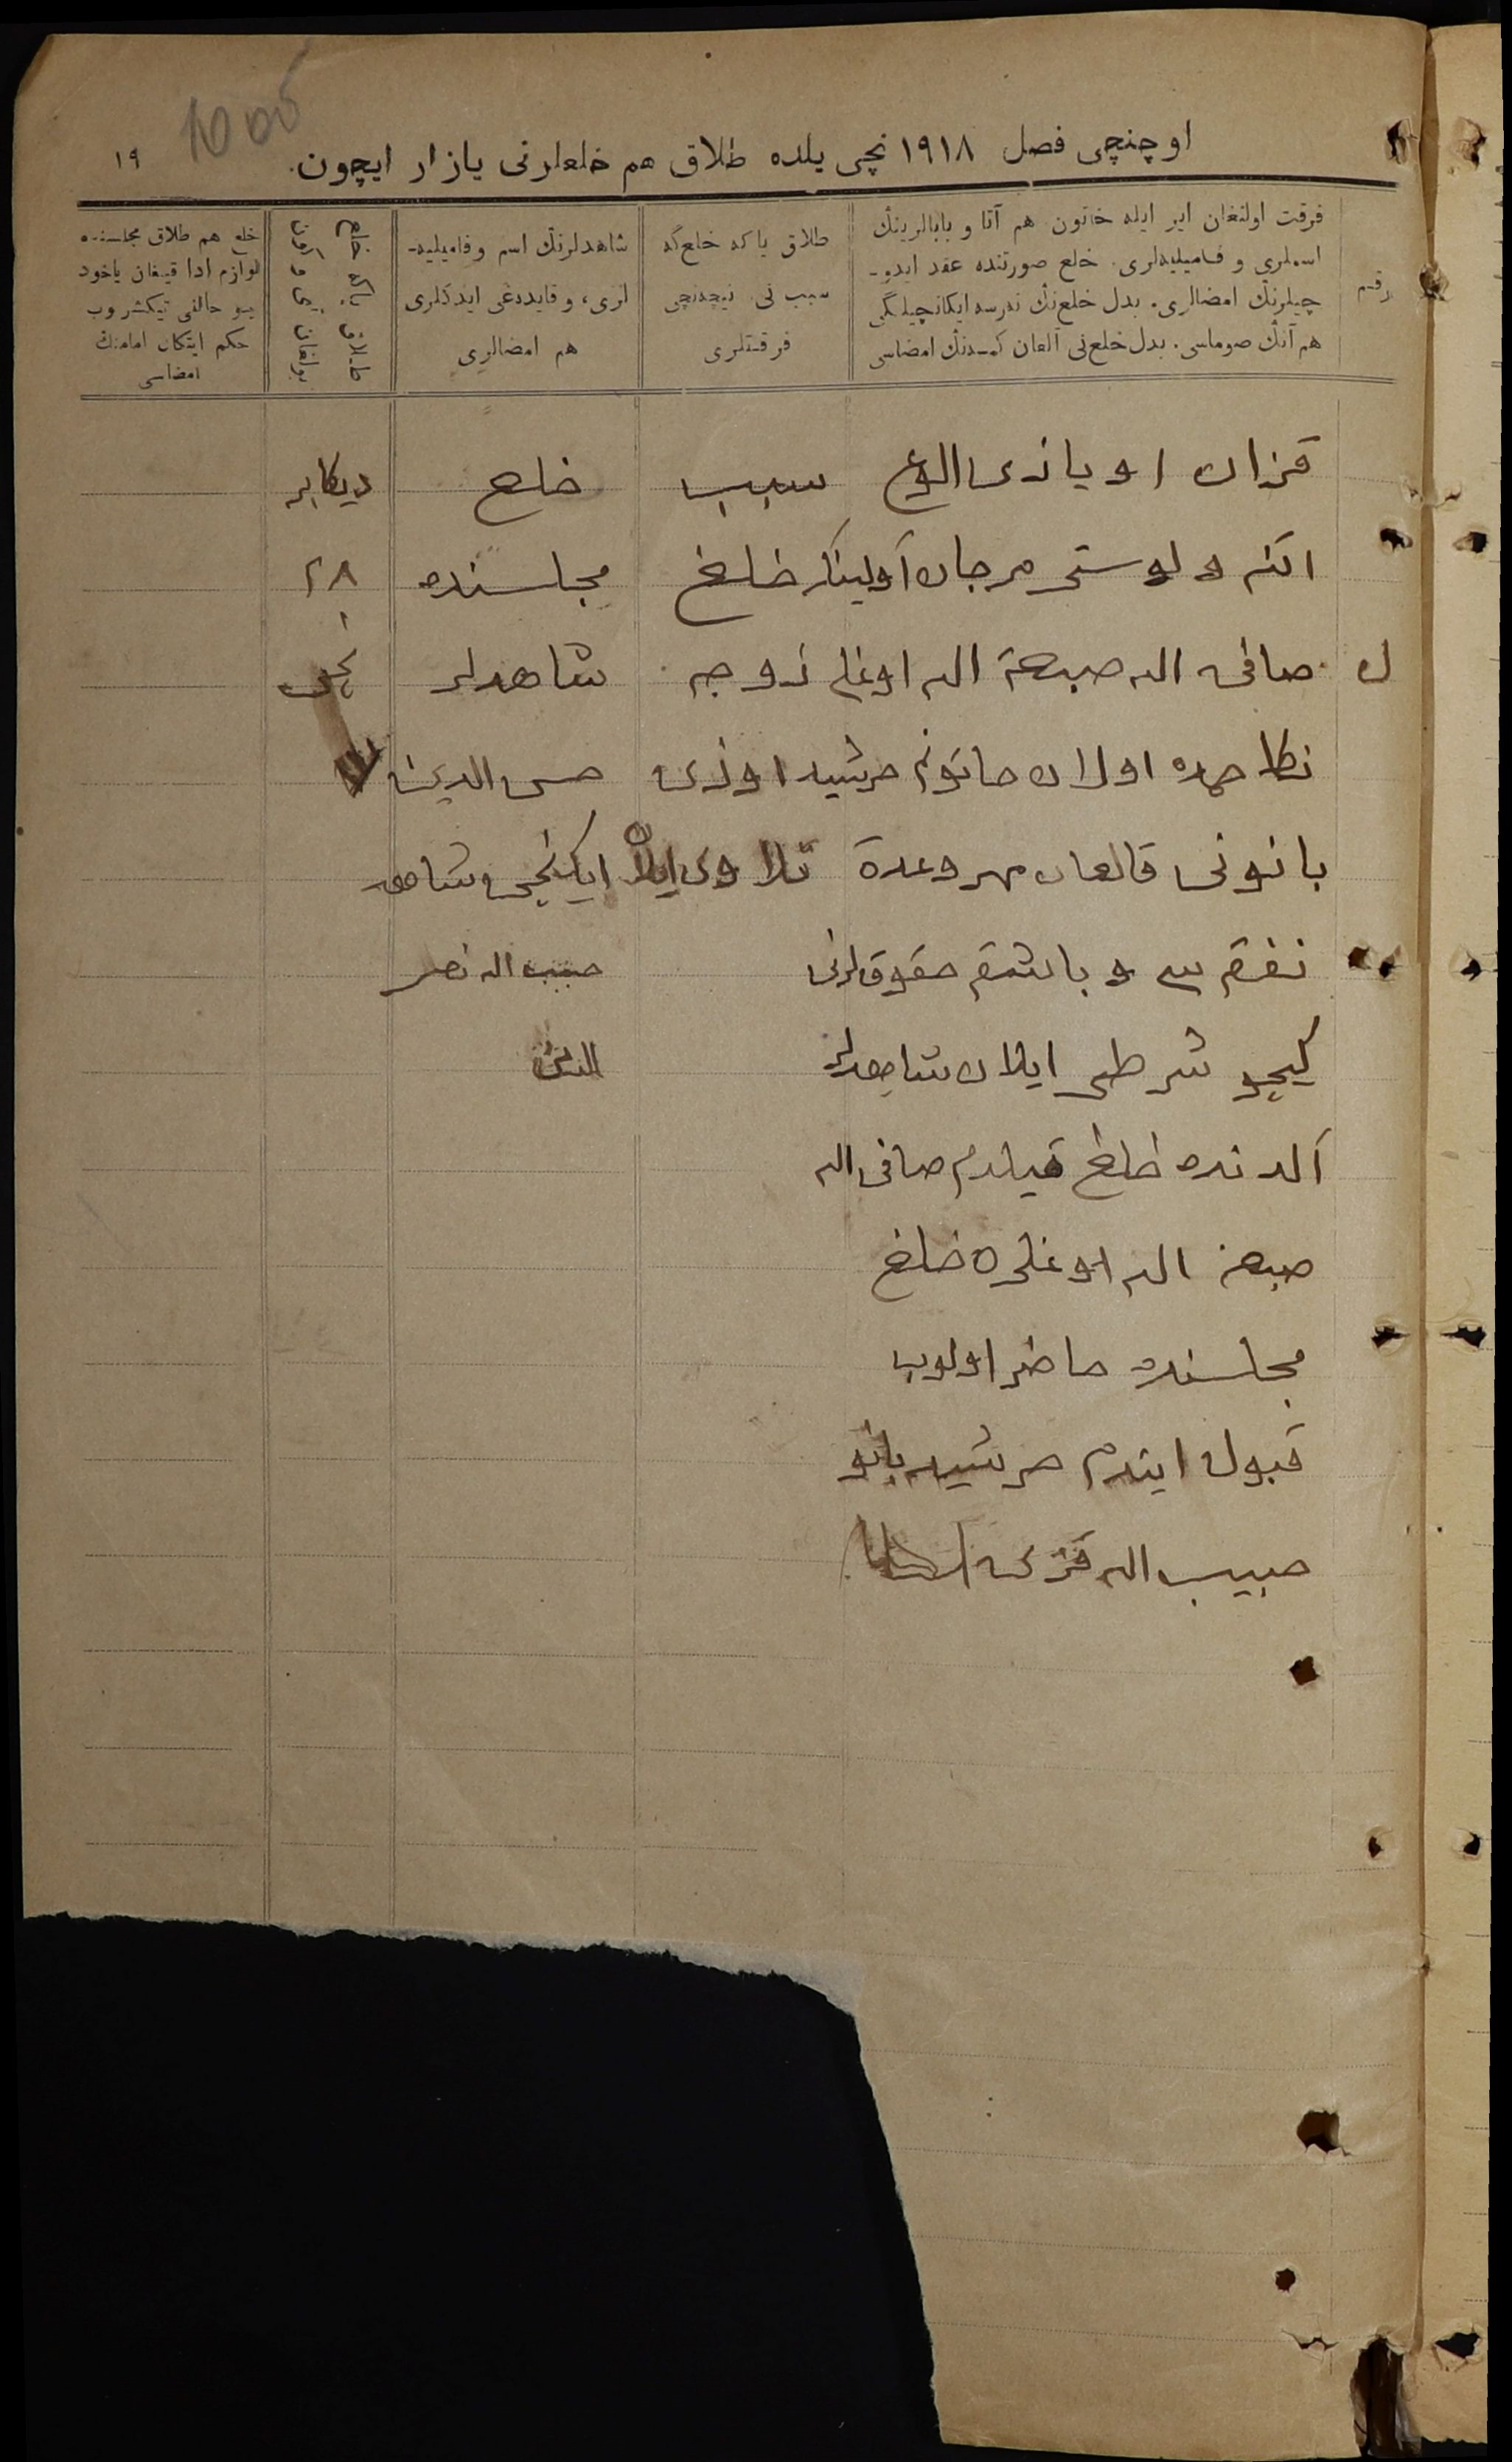 اوچنچی فصل ۱۹۱۸ نچی یلده طلاق هم خلعلرنی یازار ایچون.
۱۹
رقم
فرقت اولنغان ایر ایله خاتون هم آتا و بابالرینڭ
اسملری و فامیلیهلری. خلع صورتنده عقد ایدو-
چیلرنڭ امضالری. بدل خلعنڭ نەرسە ایکانچیلگی
هم آنڭ صوماسی. بدل خلعنی آلغان کمسەنڭ امضاسی
طلاق یا کە خلعگە
سبب نی نیچەنچی
فرقتلری
شاهدلرنڭ اسم وفامیلیە-
لری، و قایدەغی ایدکلری
هم امضالری
طلاق یاکە خلع
بولغان آی و کون
خلع هم طلاق مجلسنده
لوازم ادا قیلغان یاخود
بو حالنی تیکشروب
حکم ایتکان امامنڭ
امضاسی
قزان اویازی الوغ
اتنه ولوستی مرجان آولینڭ
صافی الله صبغة الله اوغلی زوجه
نکاحمده اولان خاتونم مرشیده
بانونی قالغان مهر وعدة
نفقه سی و باشقه حقوقلرنی
کیچو شرطی ایلان شاهدلر
آلدنده خلع قیلدم صافی الله
صبغة الله اوغلی خلع
مجلسنده حاضر اولوب
قبول ایتدم مرشیده بانو
حبیب الله قزی
سبب
خلع
اوزی
خلع
مجلسنده
شاهدلر
ایکنچی شاهد
حبیب الله
دیکابر
۲۸
نچی